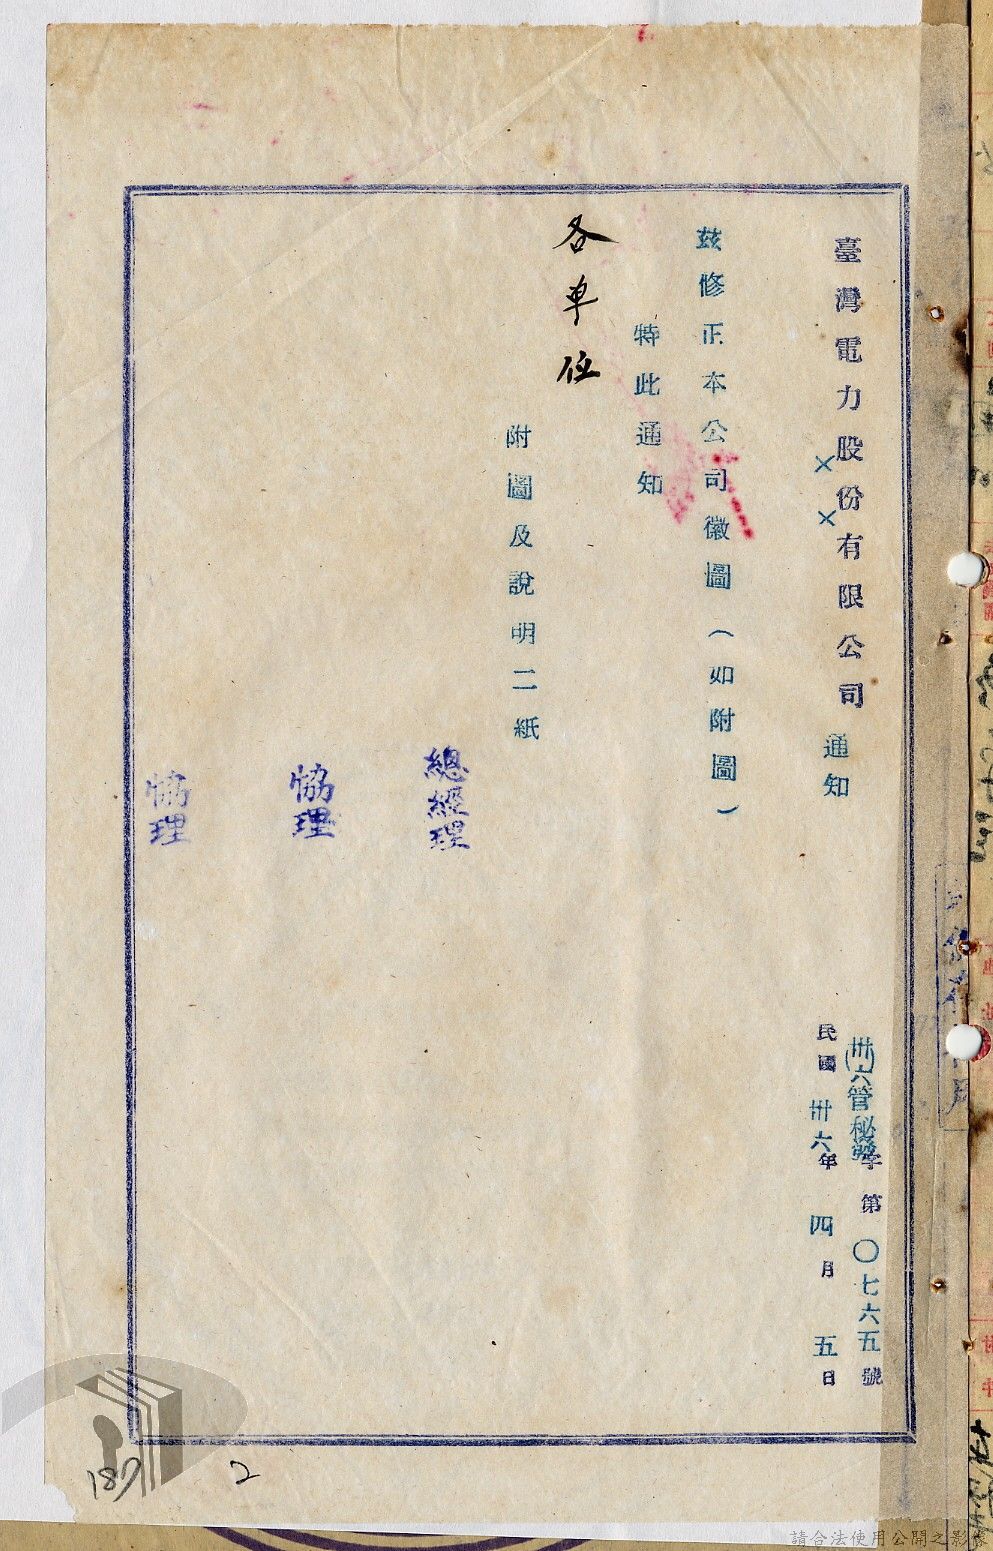 臺灣電力股份有限公司 通知
××
(卅六)管秘發字第〇七六五號
民國卅六年四月五日
茲修正本公司徽圖(如附圖)
特此通知
各單位
附圖及說明二紙
總經理
協理
協理
187
2
請合法使用公開之影像